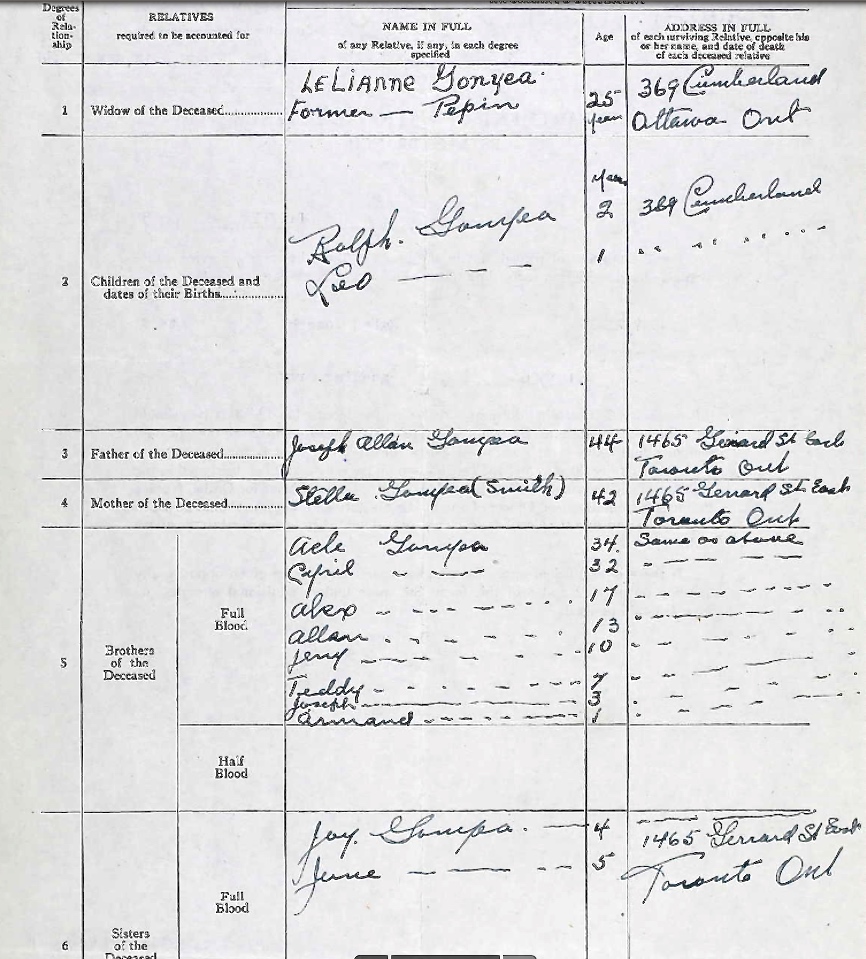 Degrees of Rela- tion- ship
RELATIVES
required to be accounted for
NAME IN FULL
of any Relative, if any, in each degree specified
Age
ADDRESS IN FULL
of each surviving Relative, opposite his
or her name, and date of death
of each deceased relative
1 Widow of the Deceased
LELIAnne Gonyea 25 369 Cumberland
Former — Pepin years Ottawa Ont
years
2 Children of the Deceased and
dates of their Births
Ralph. Gonyea 2 369 Cumberland
Leo — — — 1 " " " " " "
3 Father of the Deceased
Joseph Allan Gonyea 44 1465 Gerrard St East
Toronto Ont
4 Mother of the Deceased
Stella Gonyea (Smith) 42 1465 Gerrard St East
Toronto Ont
5 Brothers
of the
Deceased
Full
Blood
Gonyea 34. Same as above
Cyril - — 32
Alex 17
Allan 13
Jerry 10
Teddy 7
Joseph 3
Armand 1
Half
Blood
6 Sisters
of the
Deceased
Full
Blood
Joy. Gonyea. — 4 1465 Gerrard St East
June — — — 5 Toronto Ont